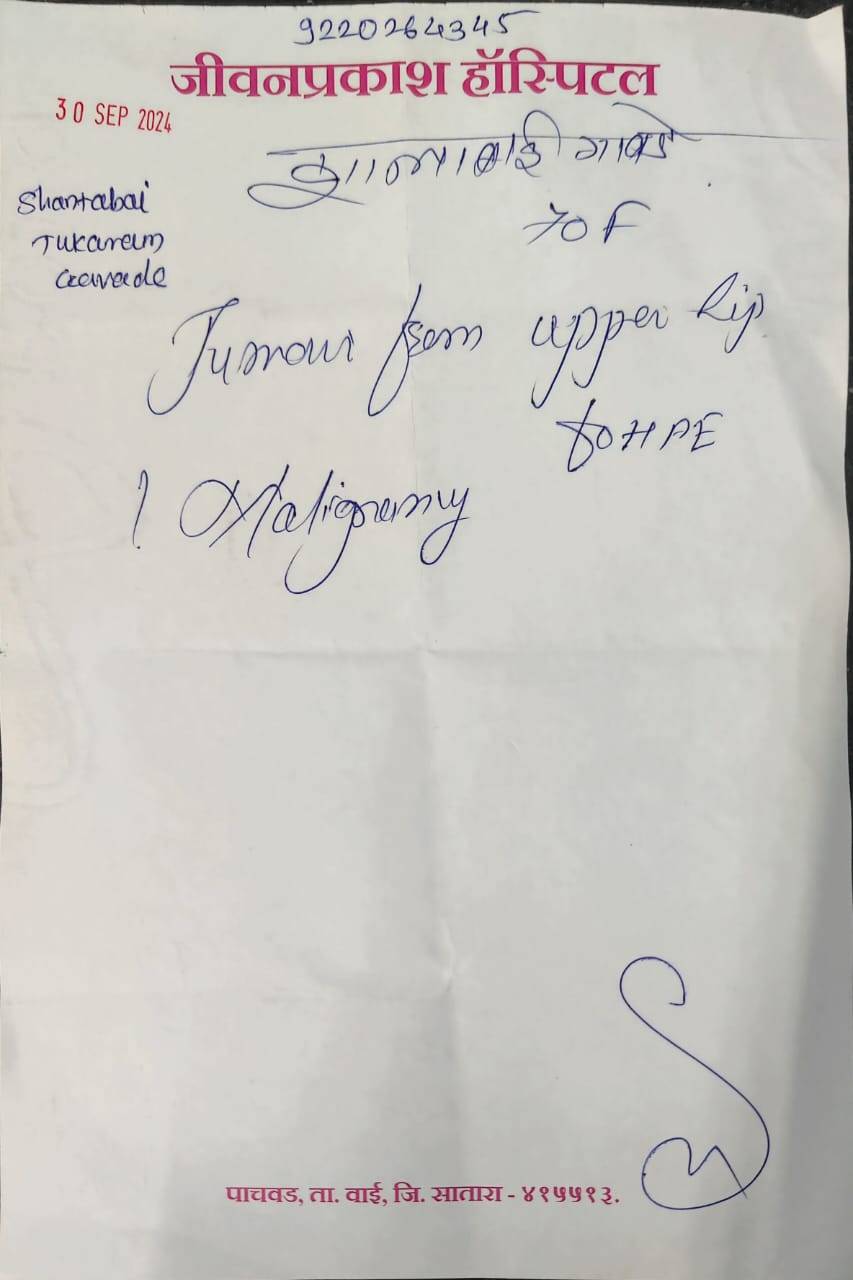 9220264345
जीवनप्रकाश हॉस्पिटल
30 SEP 2024
शान्ताबाई गावडे
Shantabai
Tukaram
Gawade
70 F
Tumour from upper lip
for HPE
? Malignancy
पाचवड, ता. वाई, जि. सातारा - ४१५५१३.